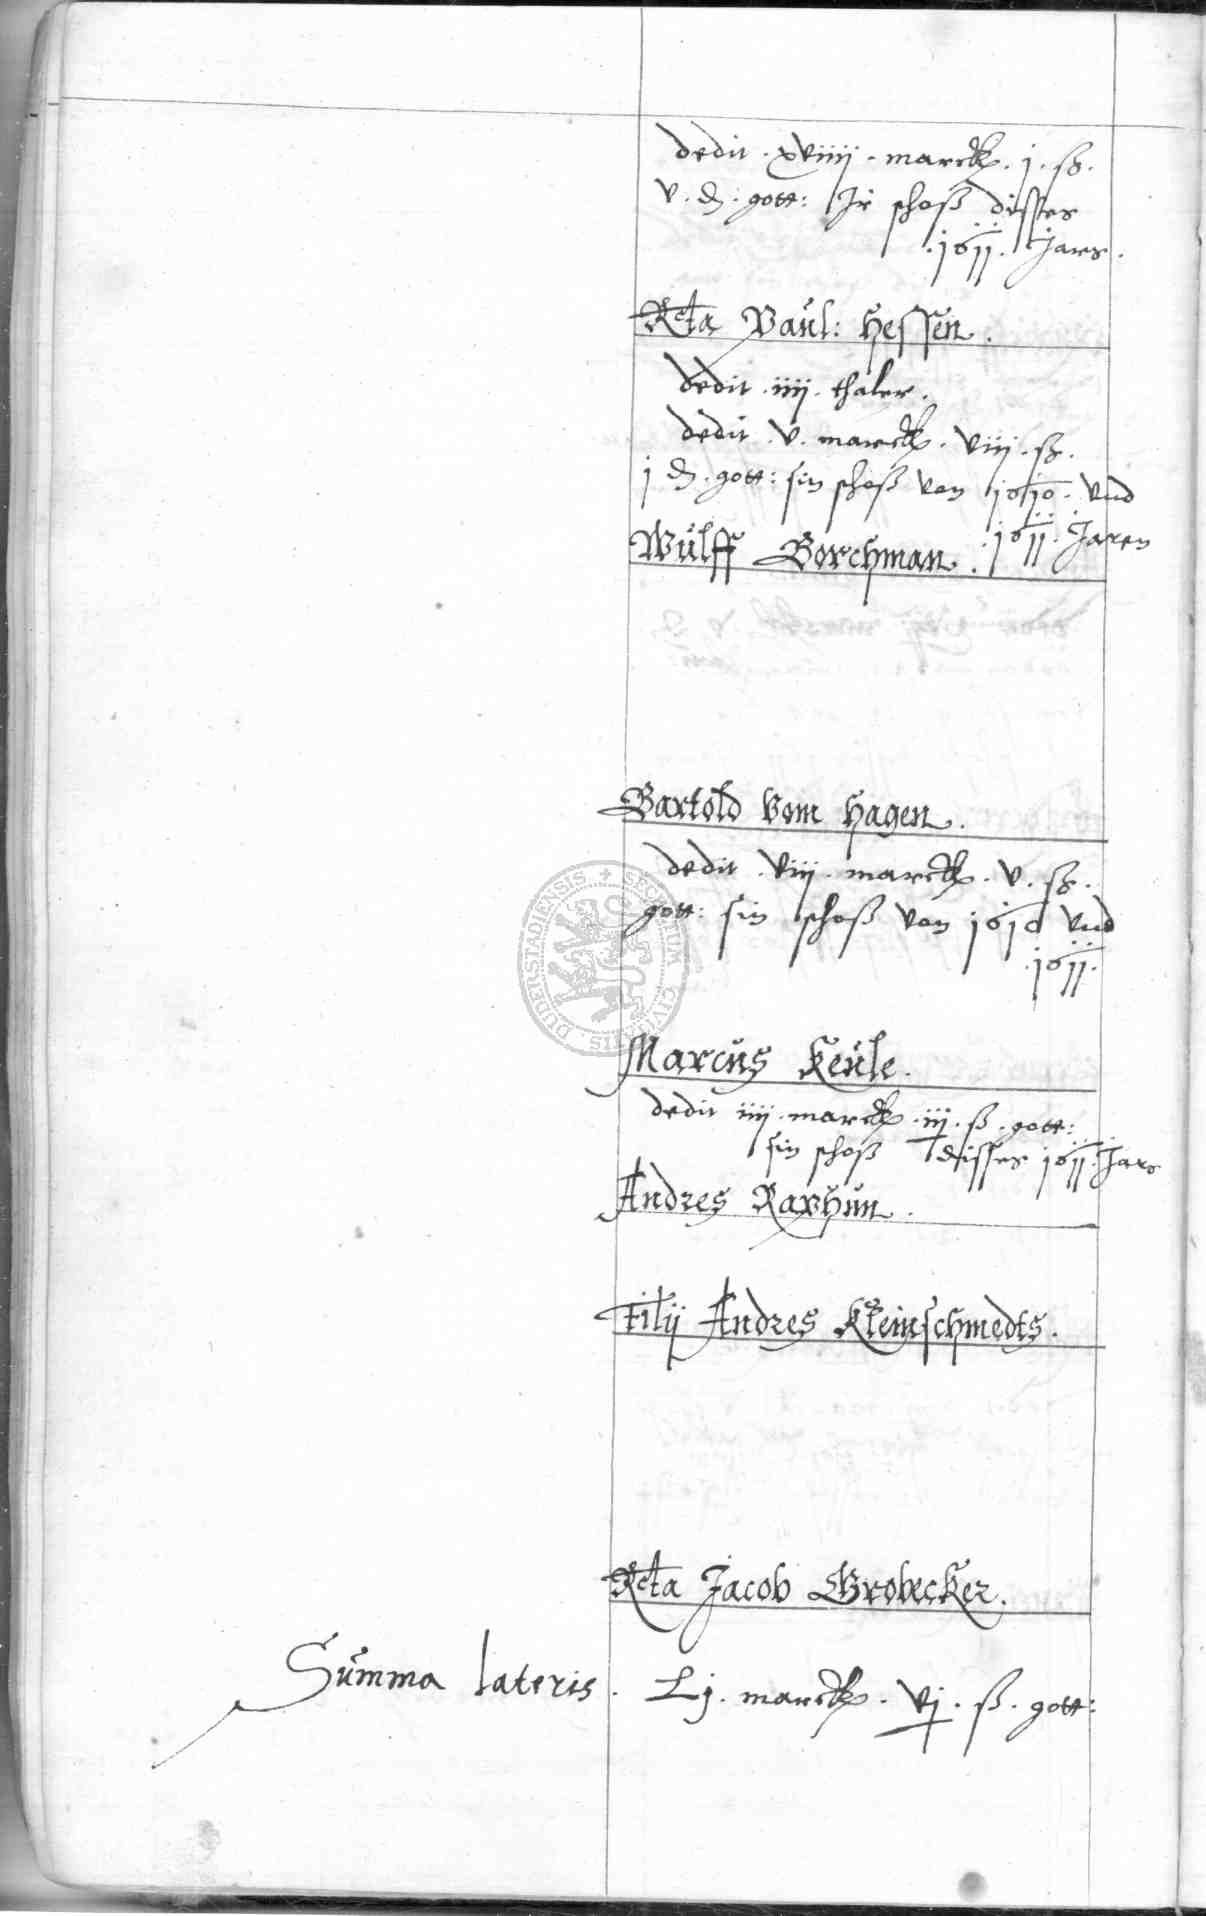 dedit . xviiij . marck . j . ß .
v . d . gott: Jr schoß disses
. 1611 . Jars .
Rcta Paul: Hessen .
dedit . iiij . thaler .
dedit . v . marck . viij . ß .
j d . gott: sin schoß von 1610 . vnd
. 1611 . Jaren
Wulff Borchman .
Bartold vom Hagen .
dedit . viij . marck . v . ß .
gott: sin schoß von 1610 vnd
. 1611 .
SECRETUM CIVITATIS DUDERSTADIENSIS
Marcus Keule .
dedit iiij . marck . iij . ß . gott:
sin schoß disses 1611 . Jars
Andres Raphun .
Filij Andres Kleinschmedts .
Rcta Jacob Grobecker .
Summa lateris . Lj . marck . vj . ß . gott: